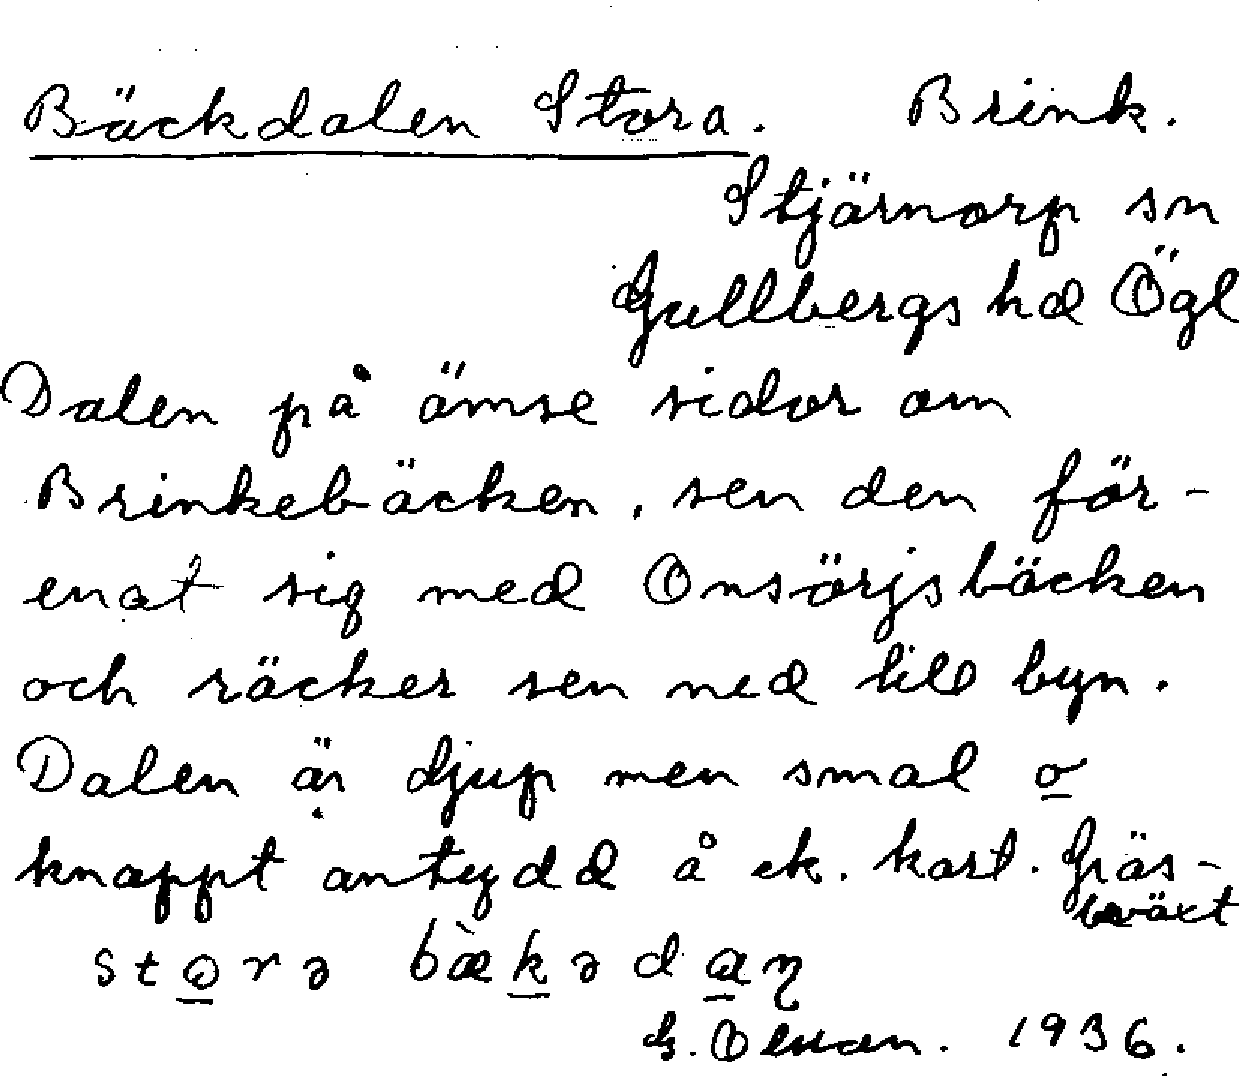 Bäckdalen Stora. Brink.
Stjärnorp sn
Gullbergs hd Ögl
Dalen på ömse sidor om
Brinkebäcken, sen den för-
enat sig med Onsörjsbäcken
och räcker sen ned till byn.
Dalen är djup men smal o
knappt antydd å ek. kart. Gräs-
beväxt
storə bækədaη
G. 1936.